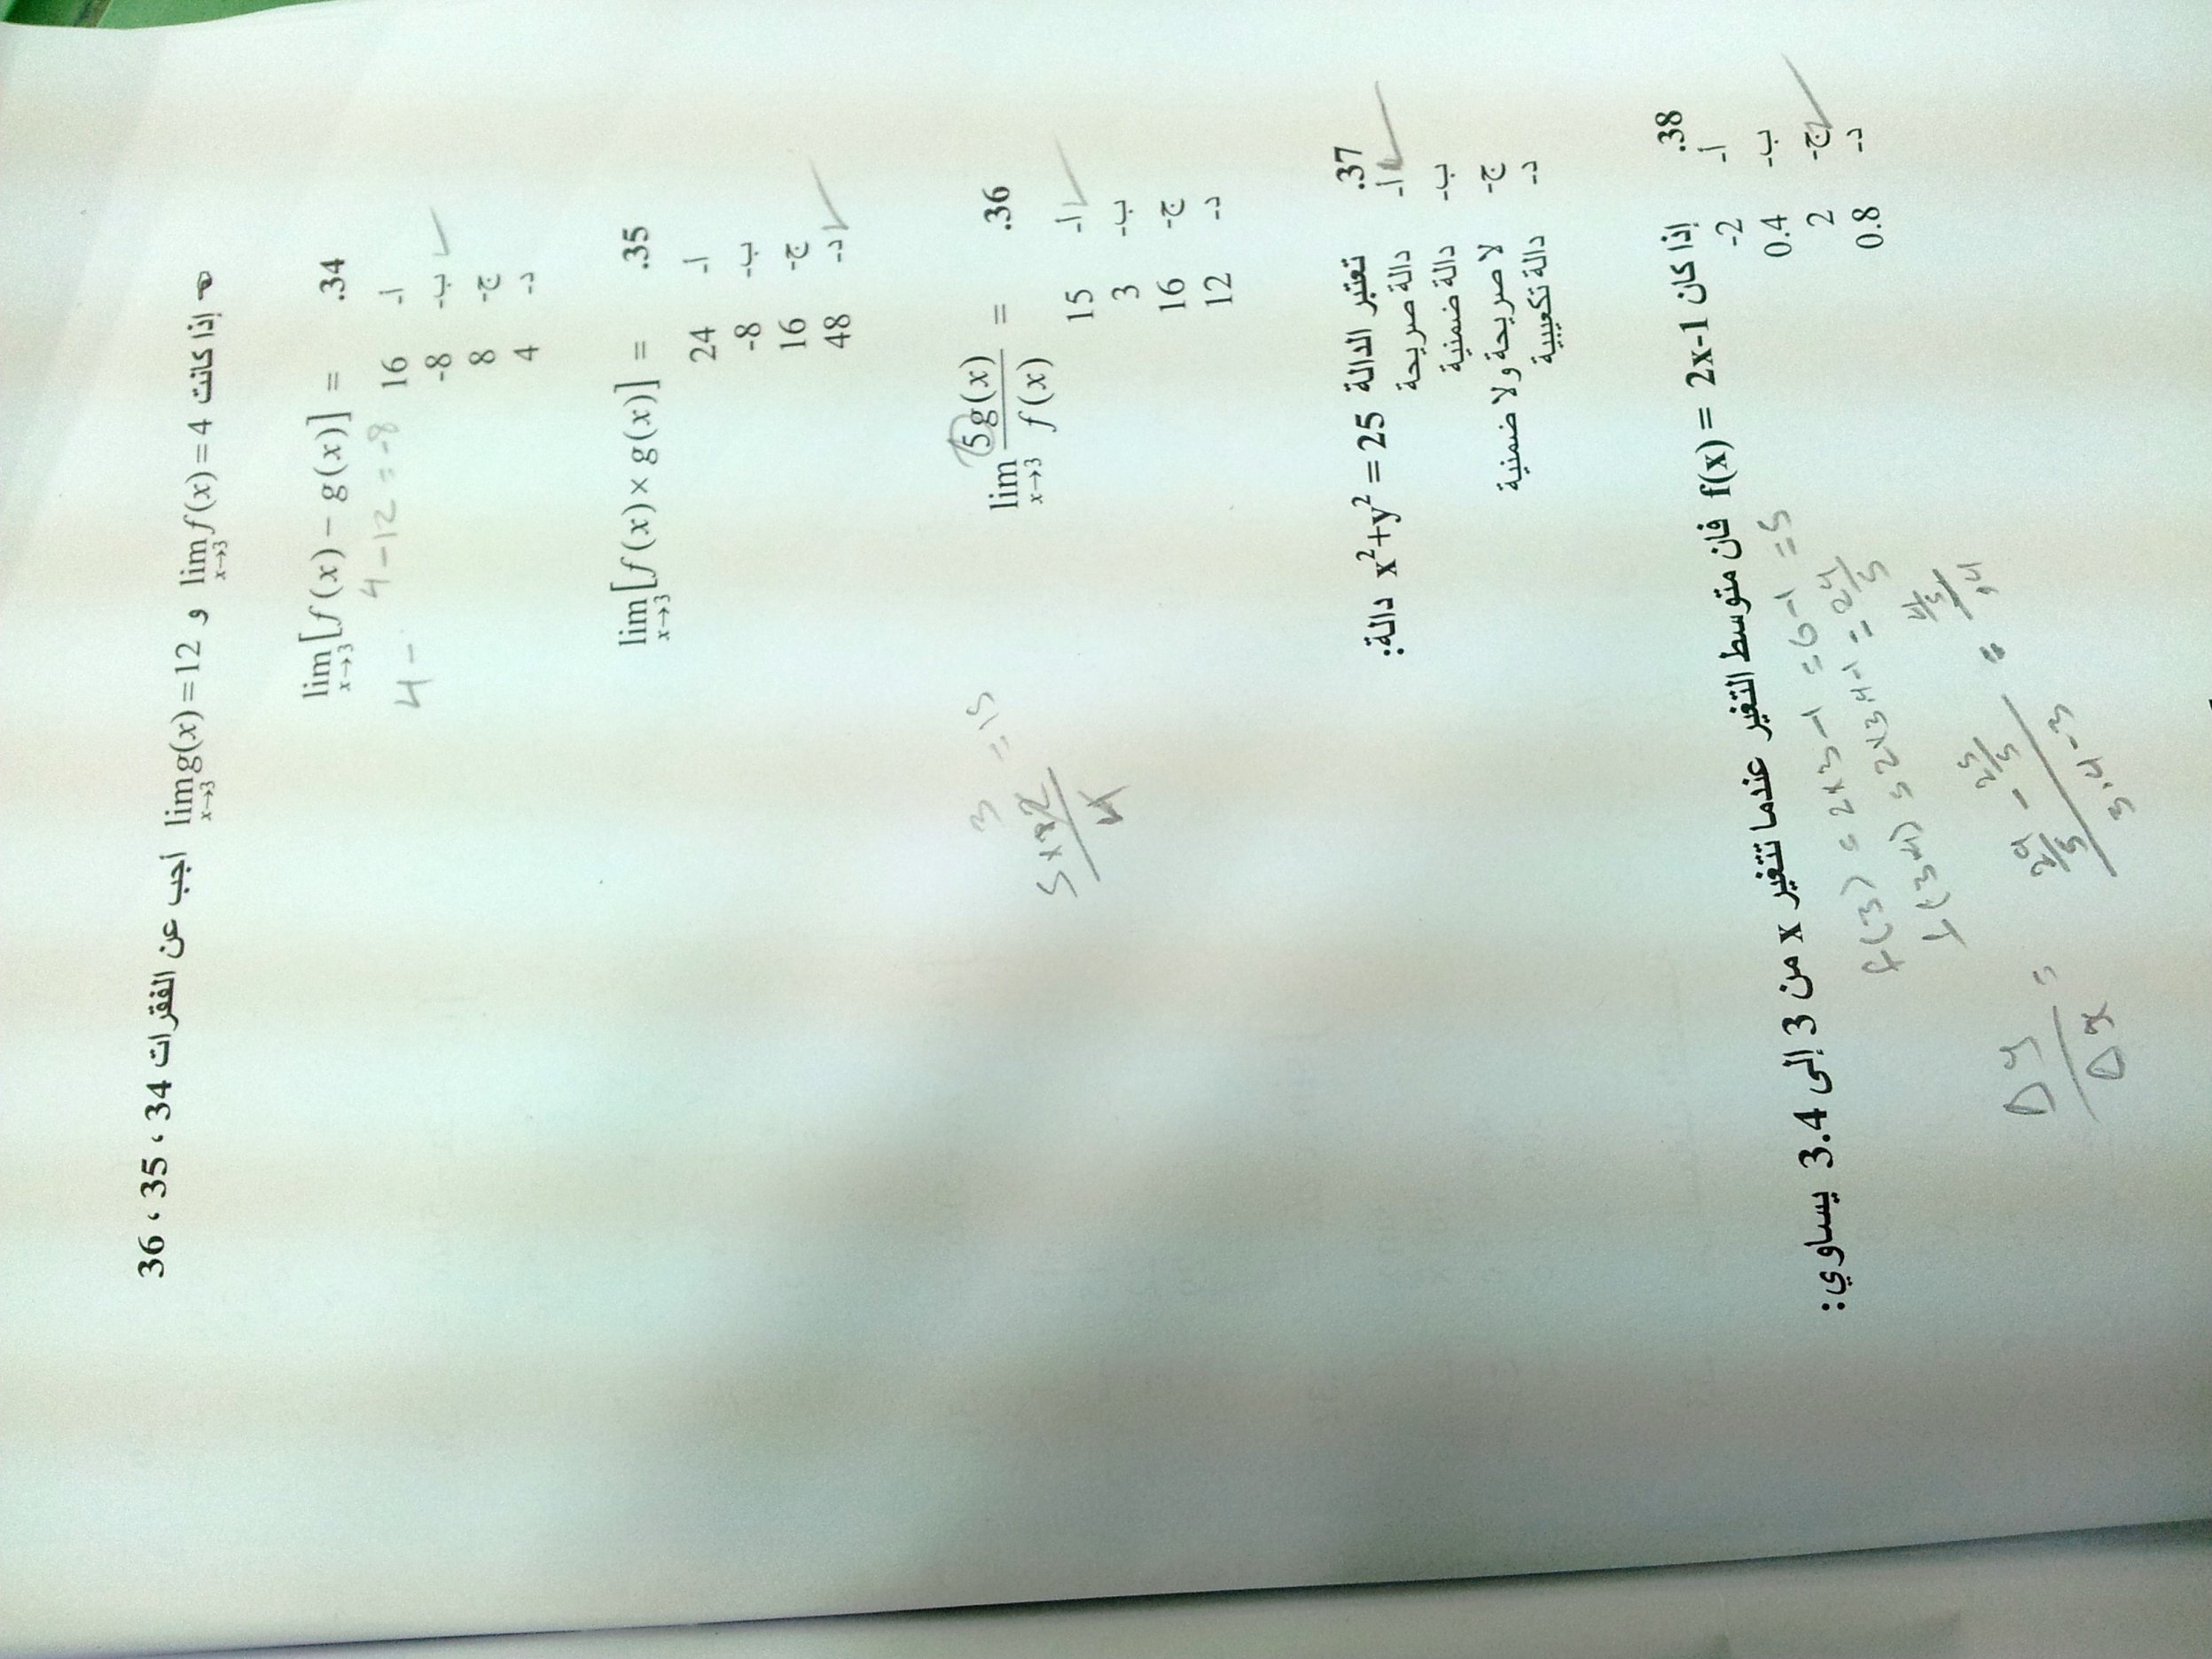 ☜ إذا كانت lim x→3 f(x) = 4 و lim x→3 g(x) = 12 أجب عن الفقرات 34 ، 35 ، 36
.34 lim x→3 [f(x) − g(x)] =
4 − 12 = -8
4 −
أ- 16
ب- -8 ✓
ج- 8
د- 4
.35 lim x→3 [f(x) × g(x)] =
أ- 24
ب- -8
ج- 16
د- 48 ✓
.36 lim x→3 5g(x) / f(x) =
أ- 15 ✓
ب- 3
ج- 16
د- 12
3
5 × 12 / 4 = 15
.37 تعتبر الدالة x²+y² = 25 دالة:
أ- دالة صريحة ✓
ب- دالة ضمنية
ج- لا صريحة ولا ضمنية
د- دالة تكعيبية
.38 إذا كان f(x) = 2x-1 فان متوسط التغير عندما تتغير x من 3 إلى 3.4 يساوي:
أ- -2
ب- 0.4
ج- 2 ✓
د- 0.8
f(3) = 2×3-1 = 6-1 = 5
Δy / Δx =
3.4-3